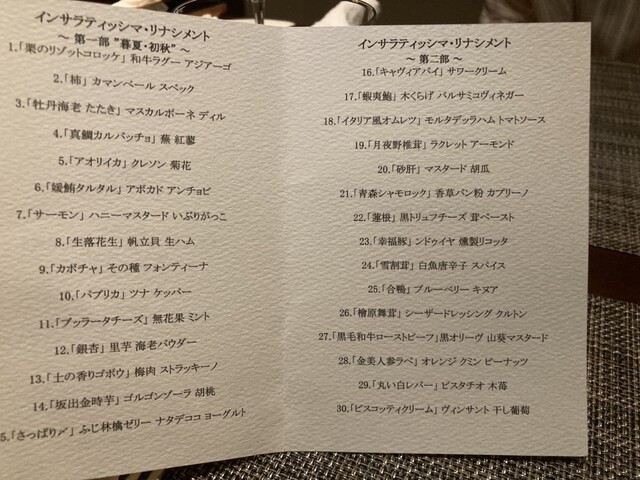 インサラティッシマ・リナシメント
～ 第一部 ”暮夏・初秋” ～
1.「栗のリゾットコロッケ」 和牛ラグー アジアーゴ
2.「柿」 カマンベール スペック
3.「牡丹海老 たたき」 マスカルポーネ ディル
4.「真鯛カルパッチョ」 蕪 紅蓼
5.「アオリイカ」 クレソン 菊花
6.「媛鮪タルタル」 アボカド アンチョビ
7.「サーモン」 ハニーマスタード いぶりがっこ
8.「生落花生」 帆立貝 生ハム
9.「カボチャ」 その種 フォンティーナ
10.「パプリカ」 ツナ ケッパー
11.「ブッラータチーズ」 無花果 ミント
12.「銀杏」 里芋 海老パウダー
13.「土の香りゴボウ」 梅肉 ストラッキーノ
14.「坂出金時芋」 ゴルゴンゾーラ 胡桃
5.「さっぱり〆」 ふじ林檎ゼリー ナタデココ ヨーグルト
インサラティッシマ・リナシメント
～ 第二部 ～
16.「キャヴィアパイ」 サワークリーム
17.「蝦夷鮑」 木くらげ バルサミコヴィネガー
18.「イタリア風オムレツ」 モルタデッラハム トマトソース
19.「月夜野椎茸」 ラクレット アーモンド
20.「砂肝」 マスタード 胡瓜
21.「青森シャモロック」 香草パン粉 カプリーノ
22.「蓮根」 黒トリュフチーズ 茸ペースト
23.「幸福豚」 ンドゥイヤ 燻製リコッタ
24.「雪割茸」 白魚唐辛子 スパイス
25.「合鴨」 ブルーベリー キヌア
26.「檜原舞茸」 シーザードレッシング クルトン
27.「黒毛和牛ローストビーフ」 黒オリーヴ 山葵マスタード
28.「金美人参ラペ」 オレンジ クミン ピーナッツ
29.「丸い白レバー」 ピスタチオ 木苺
30.「ビスコッティクリーム」 ヴィンサント 干し葡萄